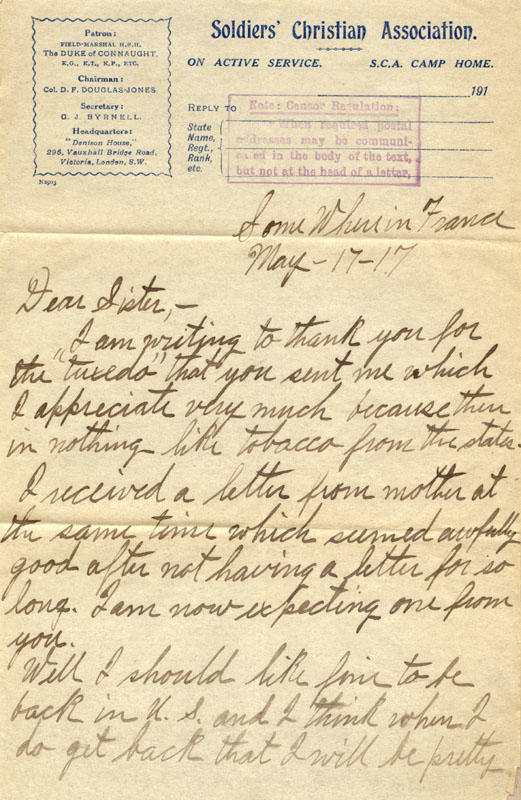 Patron:
FIELD-MARSHAL H.R.H.
The DUKE of CONNAUGHT,
K.G., K.T., K.P., ETC.
Chairman:
Col. D. F. DOUGLAS-JONES.
Secretary:
G. J. BYRNELL.
Headquarters:
"Denison House,"
296, Vauxhall Bridge Road,
Victoria, London, S.W.
Soldiers' Christian Association.
ON ACTIVE SERVICE. S.C.A. CAMP HOME.
191
REPLY TO
State
Name,
Regt.,
Rank,
etc.
Note: Censor Regulation:
When required postal
addresses may be communi-
cated in the body of the text,
but not at the head of a letter,
Some Where in France
May-17-17
Dear Sister,-
"I am writing to thank you for
the "tuxedo" that you sent me which
I appreciate very much because there
is nothing like tobacco from the states.
I received a letter from mother at
the same time which seemed awfully
good after not having a letter for so
long. I am now expecting one from
you.
Well I should like fine to be
back in U. S. and I think when I
do get back that I will be pretty